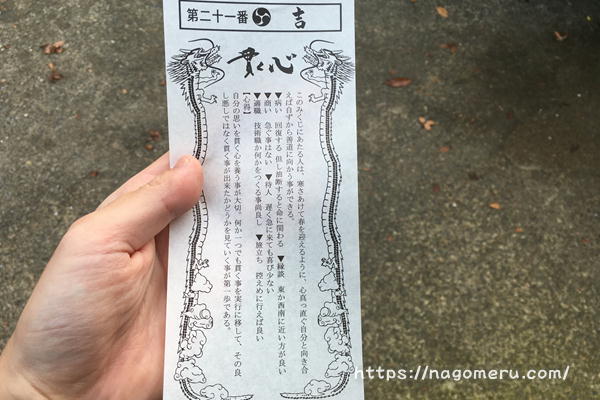 第二十一番 吉
貫く心
このみくじにあたる人は、寒さあけて春を迎えるように、心真っ直ぐ自分と向き合
えば自ずから善道に向かう事ができる。
▼病い 回復する 但し油断すると命に関わる ▼縁談 東か西南に近い方が良い
▼商い 急ぐ事はない ▼待人 遅く急に来ても喜び少ない
▼適職 技術職か何かをつくる事尚良し ▼旅立ち 控えめに行えば良い
【心得】
自分の思いを貫く心を養う事が大切。何か一つでも貫く事を実行に移して、その良
し悪しではなく貫く事が出来たかどうかを見ていく事が第一歩である。
https://nagomeru.com/